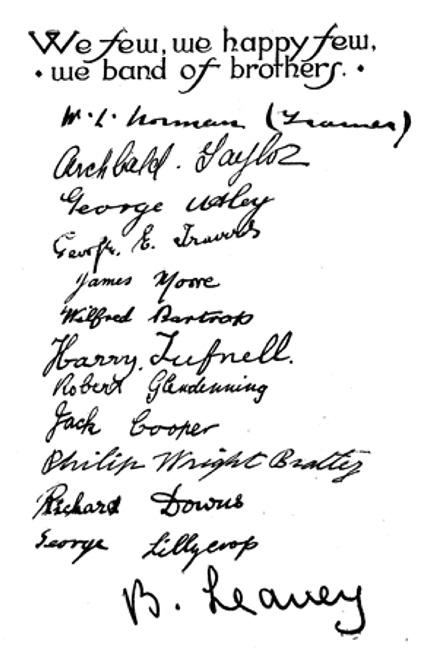 We few, we happy few,
• we band of brothers. •
W. L. Norman (Trainer)
Archibald. Taylor
George Utley
George. E. Travers
James Moore
Wilfred Bartrop
Harry. Tufnell.
Robert Glendenning
Jack Cooper
Philip Wright Bratley
Richard Downs
George Lillycrop
B. Leavey